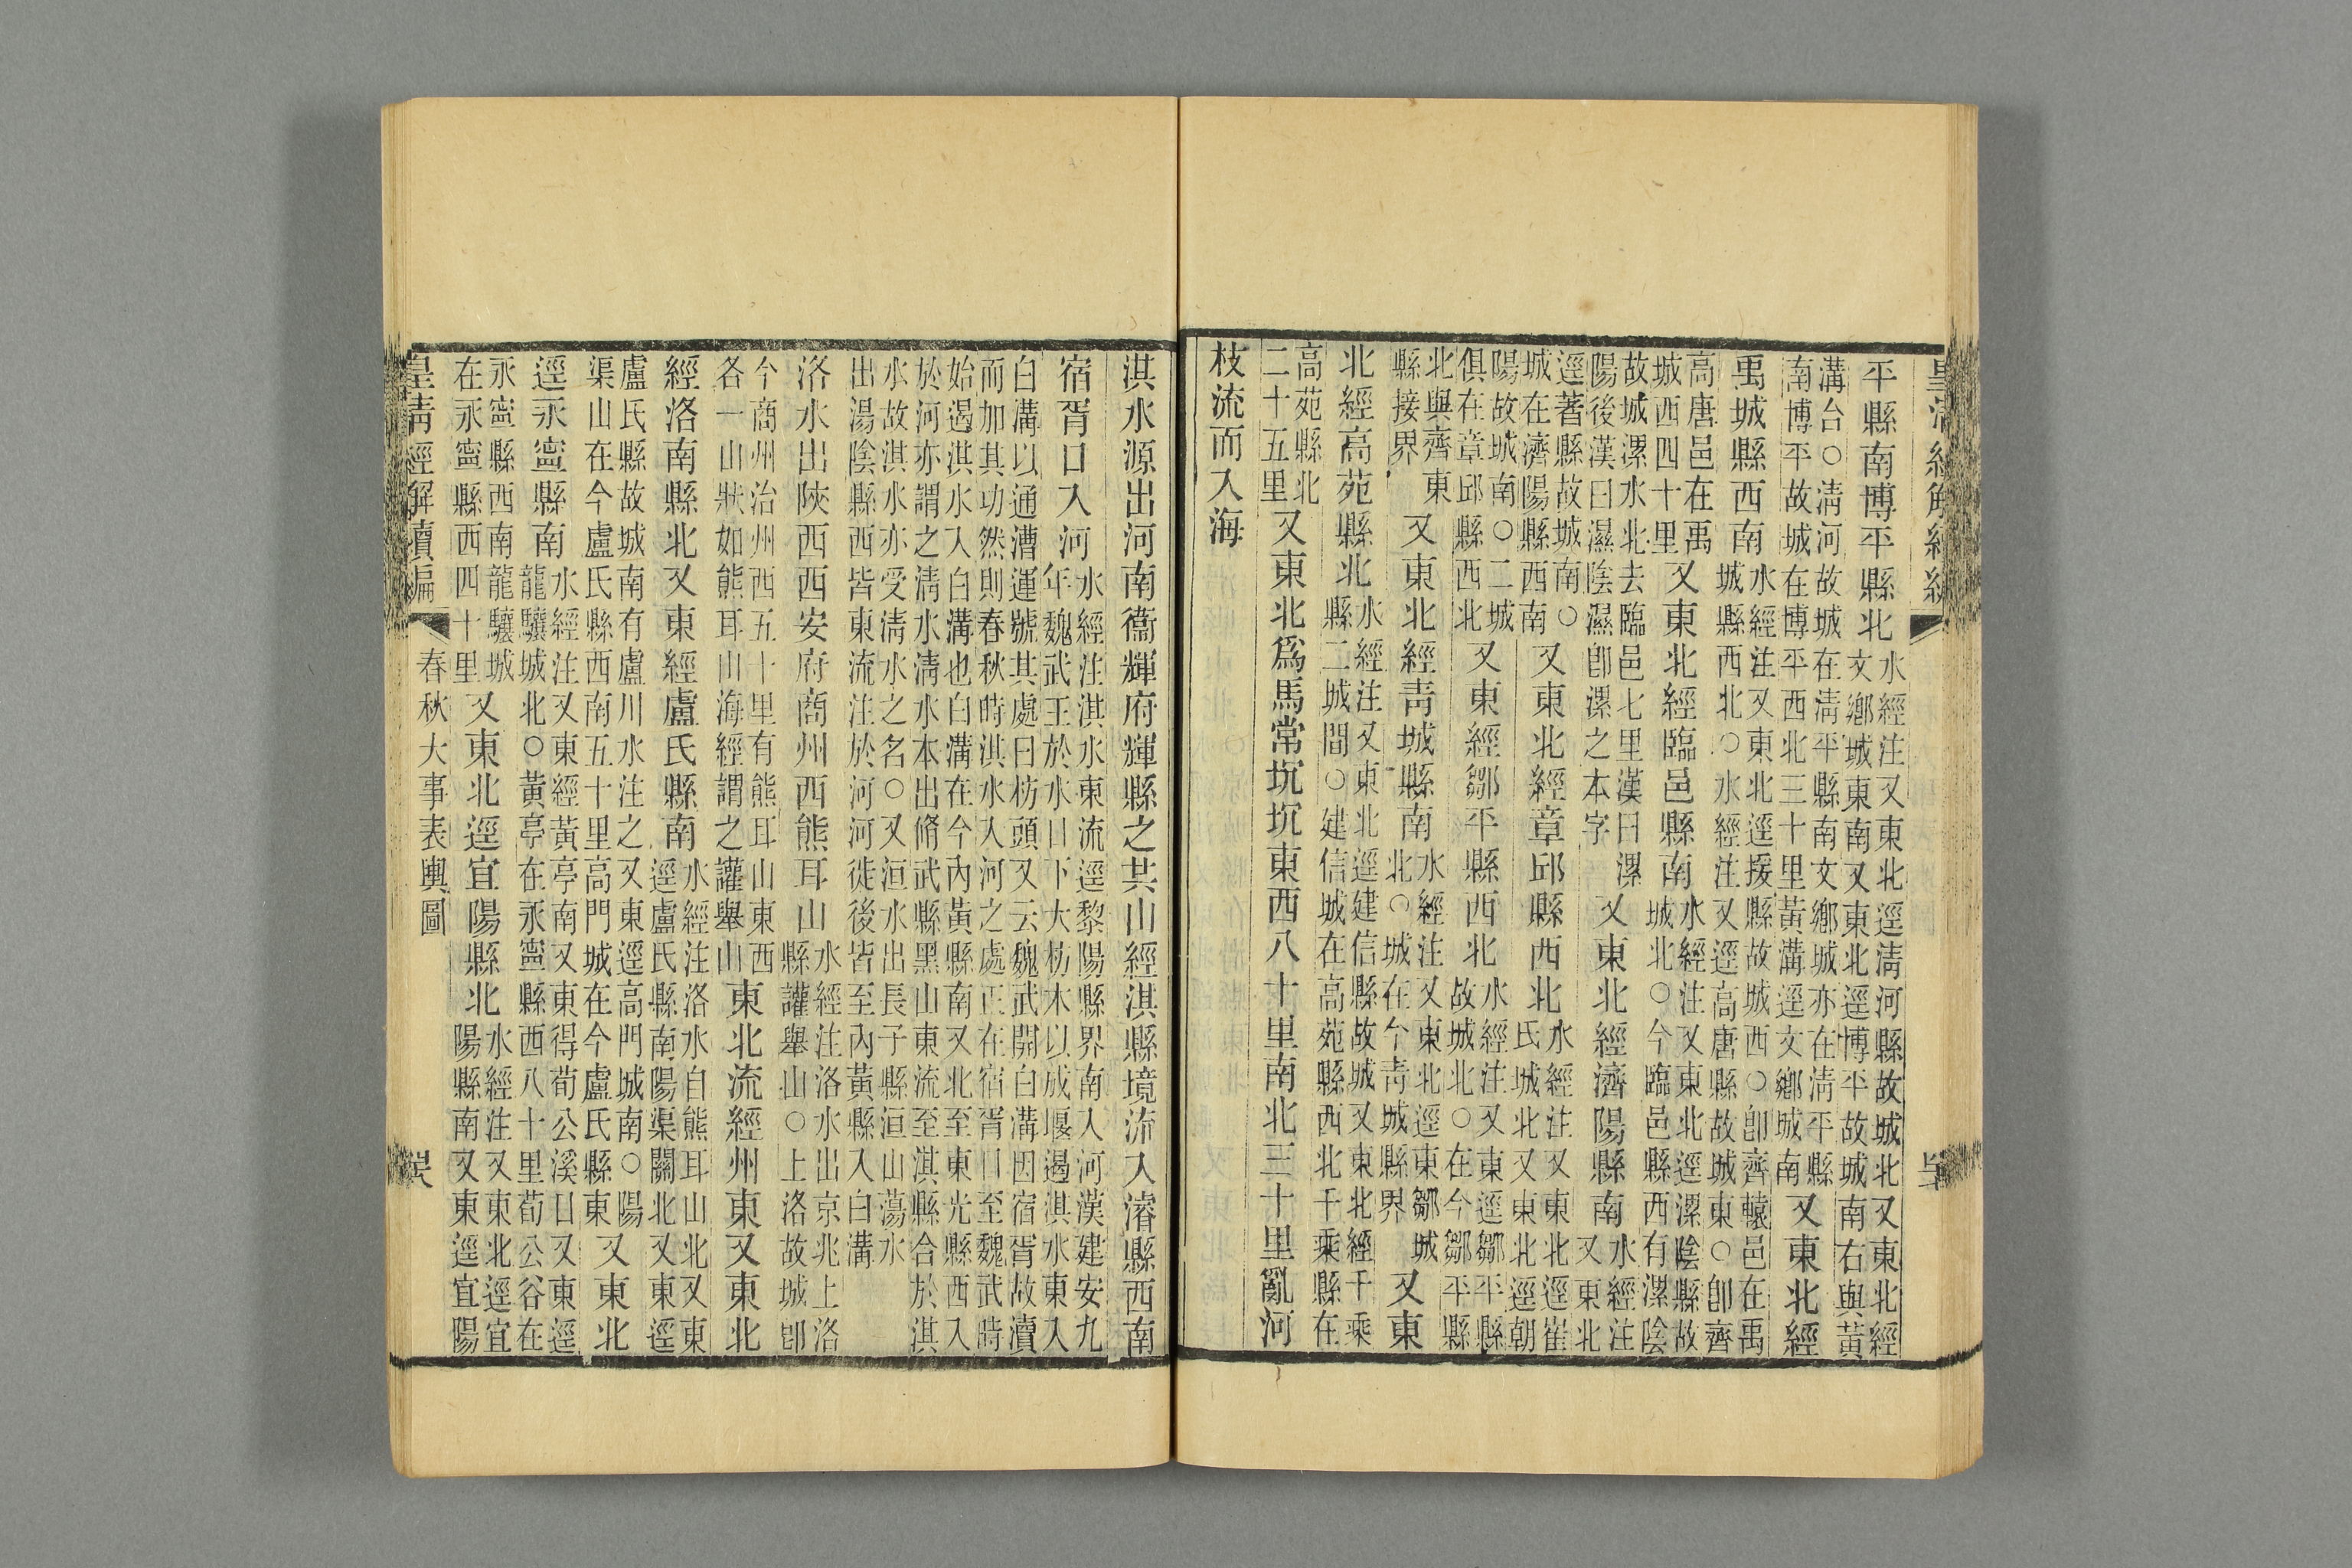 平縣南博平縣北
水經注又東北逕清河縣故城北又東北經
文鄉城東南又東北逕博平故城南右與黃
溝台○清河故城在清平縣南文鄉城亦在清平縣
南博平故城在博平西北三十里黃溝逕文鄉城南
又東北經
禹城縣西南
水經注又東北逕援縣故城西○卽齊轅邑在禹
城縣西北○水經注又逕高唐縣故城東○卽齊
高唐邑在禹
城西四十里
又東北經臨邑縣南
水經注又東北逕漯陰縣故
城北○今臨邑縣西有漯陰
故城漯水北去臨邑七里漢曰漯
陽後漢曰濕陰濕卽漯之本字
又東北經濟陽縣南
水經注
又東北
逕著縣故城南○
城在濟陽縣西南
又東北經章邱縣西北
水經注又東北逕崔
氏城北又東北逕朝
陽故城南○二城
俱在章邱縣西北
又東經鄒平縣西北
水經注又東逕鄒平縣
故城北○在今鄒平縣
北與齊東
縣接界
又東北經青城縣南
水經注又東北逕東鄒城
北○城在今青城縣界
又東
北經高苑縣北
水經注又東北逕建信縣故城又東北經千乘
縣二城間○建信城在高苑縣西北千乘縣在
高苑縣北
二十五里
又東北爲馬常坈坈東西八十里南北三十里亂河
枝流而入海
淇水源出河南衞輝府輝縣之共山經淇縣境流入濬縣西南
宿胥口入河
水經注淇水東流逕黎陽縣界南入河漢建安九
年魏武王於水口下大枋木以成堰遏淇水東入
白溝以通漕運號其處曰枋頭又云魏武開白溝因宿胥故瀆
而加其功然則春秋時淇水入河之處正在宿胥口至魏武時
始遏淇水入白溝也白溝在今內黃縣南又北至東光縣西入
於河亦謂之淸水淸水本出脩武縣黑山東流至淇縣合於淇
水故淇水亦受淸水之名○又洹水出長子縣洹山蕩水
出湯陰縣西皆東流注於河河徙後皆至內黃縣入白溝
洛水出陜西西安府商州西熊耳山
水經注洛水出京兆上洛
縣讙舉山○上洛故城卽
今商州治州西五十里有熊耳山東西
各一山狀如熊耳山海經謂之讙舉山
東北流經州東又東北
經洛南縣北又東經盧氏縣南
水經注洛水自熊耳山北又東
逕盧氏縣南陽渠關北又東逕
盧氏縣故城南有盧川水注之又東逕高門城南○陽
渠山在今盧氏縣西南五十里高門城在今盧氏縣東
又東北
逕永寧縣南
水經注又東經黃亭南又東得荀公溪口又東逕
龍驤城北○黃亭在永寧縣西八十里荀公谷在
永寧縣西南龍驤城
在永寧縣西四十里
又東北逕宜陽縣北
水經注又東北逕宜
陽縣南又東逕宜陽
皇清經解續編
春秋大事表輿圖